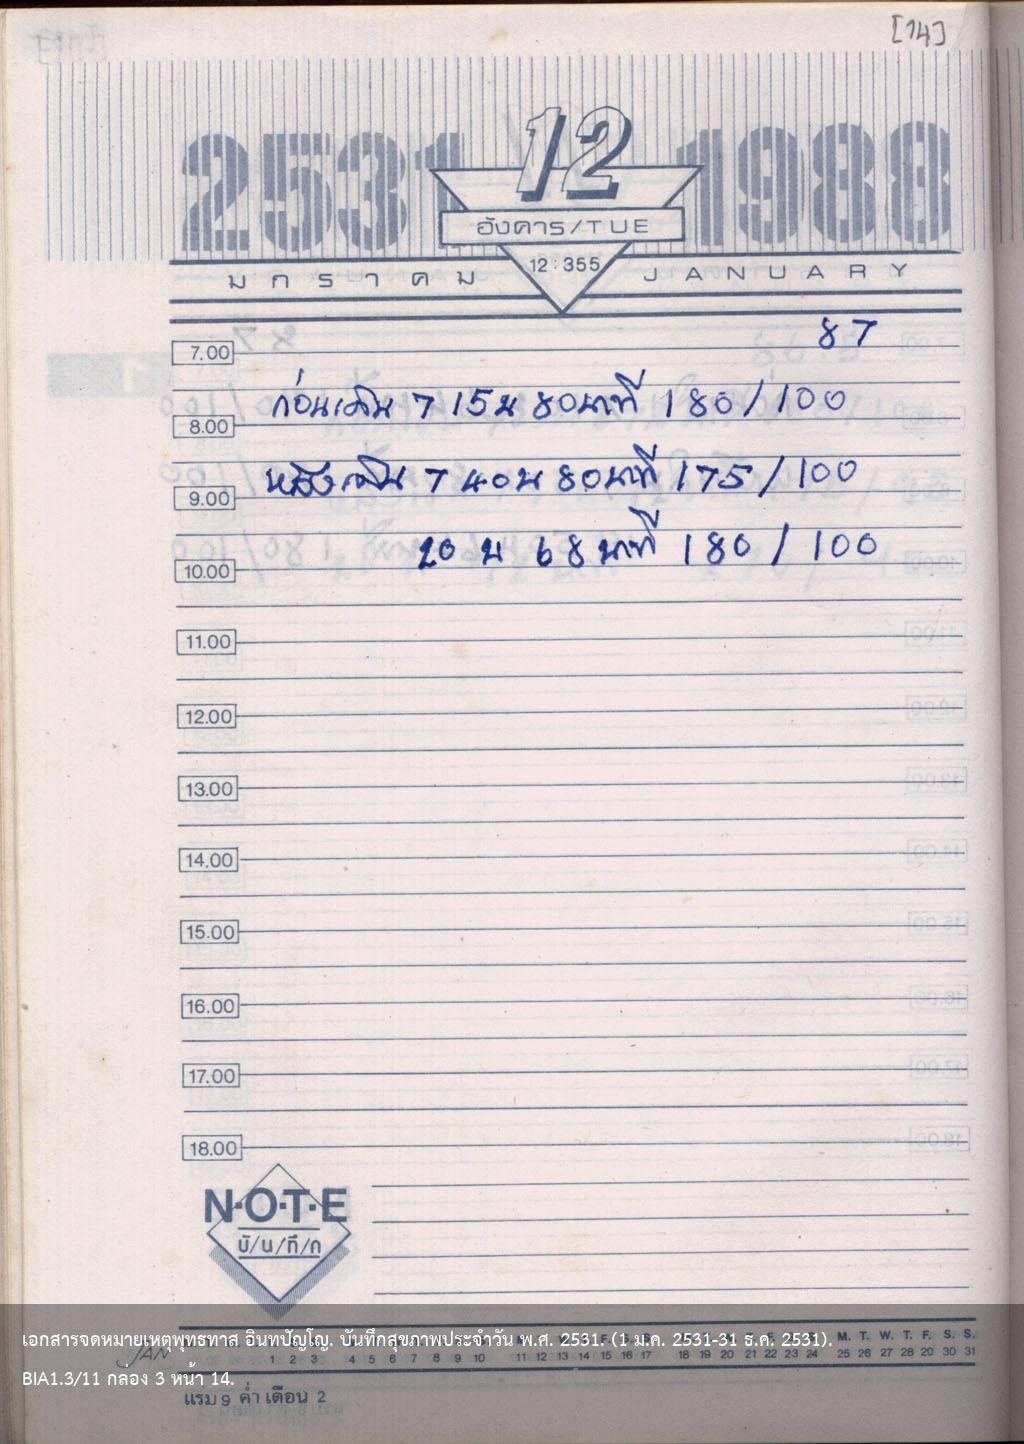 [14]
2531 12 1988
อังคาร/TUE
12:355
มกราคม JANUARY
87
7.00
ก่อนเดิน 7 15 น 80 นาที 180/100
8.00
หลังเดิน 7 40 น 80 นาที 175/100
9.00
20 น 68 นาที 180/100
10.00
11.00
12.00
13.00
14.00
15.00
16.00
17.00
18.00
N·O·T·E
บั/น/ทึ/ก
เอกสารจดหมายเหตุพุทธทาส อินทปัญโญ. บันทึกสุขภาพประจำวัน พ.ศ. 2531. (1 ม.ค. 2531-31 ธ.ค. 2531).
M. T. W. T. F. S. S.
JAN 1 2 3 4 5 6 7 8 9 10 11 12 13 14 15 16 17 18 19 20 21 22 23 24 25 26 27 28 29 30 31
BIA1.3/11 กล่อง 3 หน้า 14.
แรม 9 ค่ำ เดือน 2